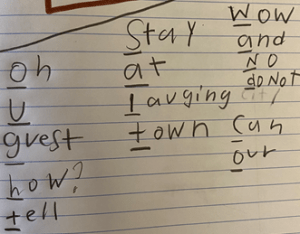 oh
u
guest
how?
tell
Stay
at
laughing
town
Wow
and
NO
do Not
Can
our